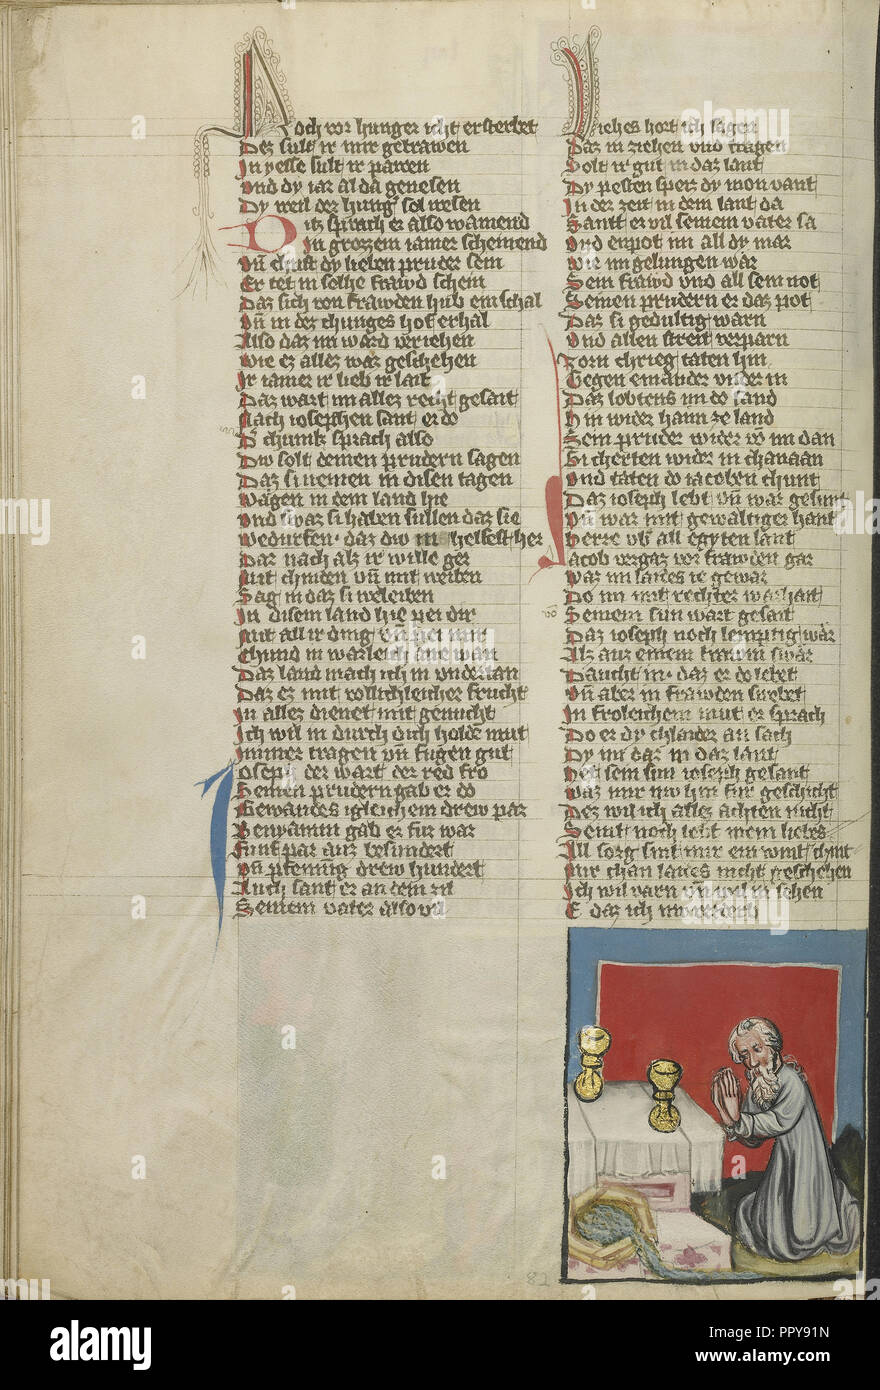 Noch vor hunger icht ersterbet
Dez sult ir mir getrawen
In yesse sult ir pawen
Vnd dy iar al da genesen
Dy weil der hung sol wesen
Ditz sprach er also wainend
In grozzem iamer scheinend
Vn chust dy lieben pruder sein
Er tet in solhe frawd schein
Daz sich von frawden hub ein schal
Vn in dez chunges hof erhal
Also daz im ward veriehen
Wie ez allez waz geschehen
Ir iamer ir lieb ir lait
Daz wart im allez recht gesait
Nach iosephen sant er do
D chunk sprach also
Dw solt deinen prudern sagen
Daz si nemen in disen tagen
Wagen in dem land hie
Vnd swaz si haben sullen daz sie
Bedurfen daz dw in helfest her
Dar nach alz ir wille ger
Mit chinden vn mit weiben
Sag in daz si beleiben
In disem land hie pei dir
Mit all ir ding vn pei mir
Chund in warleich ane wan
Daz land mach ich in vndertan
Daz ez mit vollichleicher frucht
In allez dienet mit genucht
Ich wil in durch dich holde mut
Immer tragen vn fugen gut
Ioseph der wart der red fro
Seinen prudern gab er do
Gewandes igleichem drew par
Benyamin gab er fur war
Funf par auz besundert
Vn pfenning drew hundert
Auch sant er an dem zil
Seinem vater also vil
Viehes hort ich sagen
Daz in ziehen vnd tragen
Solt ir gut in daz lant
Dy pesten speiz dy mon vant
In der zeit in dem lant da
Santt er vil seinem vater sa
Vnd enpot im all dy mar
Wie im gelungen war
Sein frawd vnd all sein not
Seinen prudern er daz pot
Daz si gedultig warn
Vnd allen streit verparn
Zorn chrieg taten hin
Gegen einander vnder in
Daz lobtens im do sand
Hin wider haim ze land
Sein pruder wider vo im dan
Si cherten wider in chanaan
Vnd taten do iacoben chunt
Daz ioseph lebt vn war gesunt
Vn war mit gewaltiger hant
Herre vb all egypten lant
Iacob vergaz vor frawden gar
Waz im laides ie gewar
Do im mit rechter warhait
Seinem sun wart gesait
Daz ioseph noch lemptig war
Alz auz einem trawm swar
Daucht in daz er do lebet
Vn aber in frawden swebet
In froleichem mut er sprach
Do er dy chlaider an sach
Dy im daz in daz lant
Het sein sun ioseph gesant
Waz mir nw hin fur geschicht
Dez wil ich allez achten nicht
Seint noch lebt mein liebes
All sorg sint mir ein wint chint
Mir chan laides nicht geschehen
Ich wil varn vn wil in sehen
E daz ich
82
alamy stock photo
Image ID: PPY91N
www.alamy.com